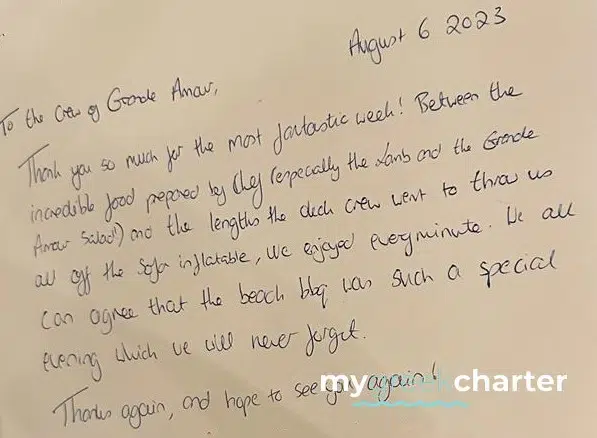 August 6 2023
To the Crew of Grande Amour,
Thank you so much for the most fantastic week! Between the
incredible food prepared by Chef (especially the Lamb and the Grande
Amour Salad!) and the lengths the deck crew went to throw us
all off the Sofa inflatable, we enjoyed every minute. We all
can agree that the beach bbq was such a special
evening which we will never forget.
Thanks again, and hope to see you again!
my charter